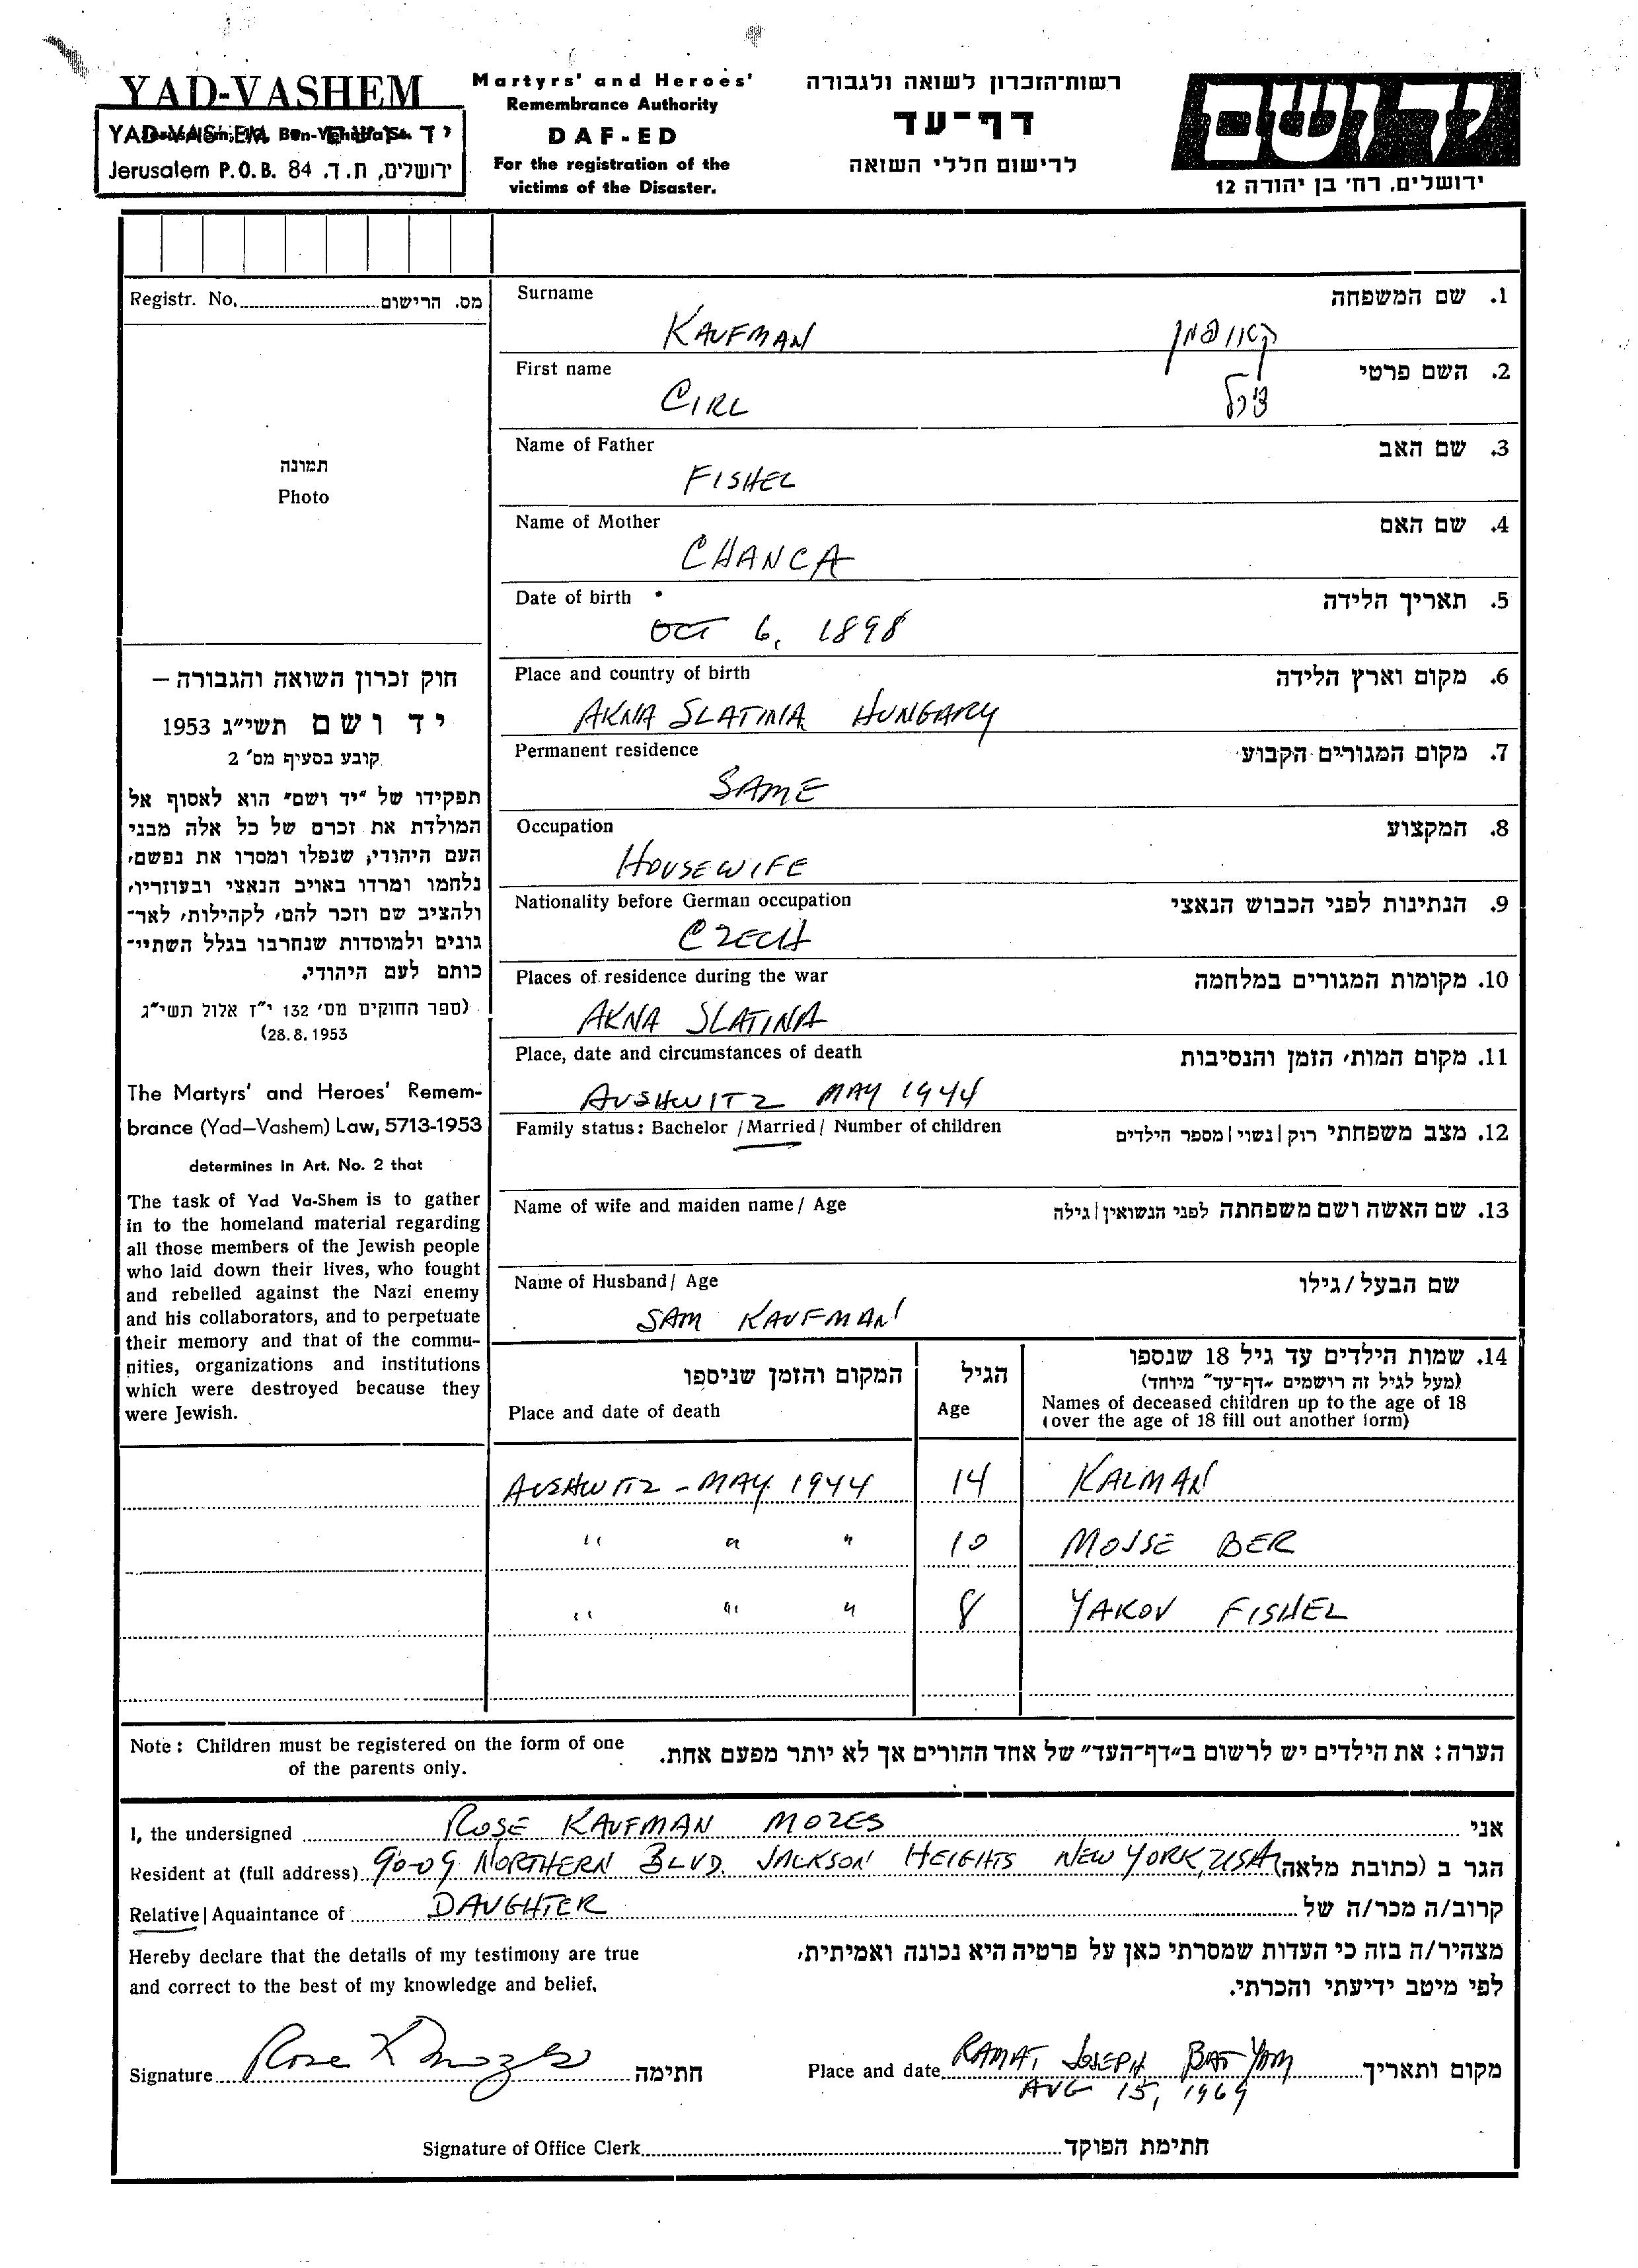 YAD-VASHEM
YAD-VASHEM יד ושם
Jerusalem P.O.B. 84 .ירושלים, ת.ד
Martyrs' and Heroes'
Remembrance Authority
DAF-ED
For the registration of the
victims of the Disaster.
רשות־הזכרון לשואה ולגבורה
דף־עד
לרישום חללי השואה
ידושם
ירושלים, רח׳ בן יהודה 12
Registr. No. מס. הרישום
תמונה
Photo
חוק זכרון השואה והגבורה –
יד ושם תשי״ג 1953
קובע בסעיף מס׳ 2
תפקידו של ״יד ושם״ הוא לאסוף אל
המולדת את זכרם של כל אלה מבני
העם היהודי, שנפלו ומסרו את נפשם,
נלחמו ומרדו באויב הנאצי ובעוזריו,
ולהציב שם וזכר להם, לקהילות, לאר־
גונים ולמוסדות שנחרבו בגלל השתיי־
כותם לעם היהודי.
(ספר החוקים מס׳ 132 י״ז אלול תשי״ג
28.8.1953)
The Martyrs' and Heroes' Remem-
brance (Yad–Vashem) Law, 5713-1953
determines in Art. No. 2 that
The task of Yad Va-Shem is to gather
in to the homeland material regarding
all those members of the Jewish people
who laid down their lives, who fought
and rebelled against the Nazi enemy
and his collaborators, and to perpetuate
their memory and that of the commu-
nities, organizations and institutions
which were destroyed because they
were Jewish.
Surname 1. שם המשפחה
KAUFMAN קאופמן
First name 2. השם פרטי
CIRL צירל
Name of Father 3. שם האב
FISHEL
Name of Mother 4. שם האם
CHANCA
Date of birth 5. תאריך הלידה
OCT 6, 1898
Place and country of birth 6. מקום וארץ הלידה
AKNA SLATINA HUNGARY
Permanent residence 7. מקום המגורים הקבוע
SAME
Occupation 8. המקצוע
HOUSEWIFE
Nationality before German occupation 9. הנתינות לפני הכבוש הנאצי
CZECH
Places of residence during the war 10. מקומות המגורים במלחמה
AKNA SLATINA
Place, date and circumstances of death 11. מקום המות, הזמן והנסיבות
AUSHWITZ MAY 1944
Family status: Bachelor / Married / Number of children 12. מצב משפחתי רוק | נשוי | מספר הילדים
Name of wife and maiden name / Age 13. שם האשה ושם משפחתה לפני הנשואין | גילה
Name of Husband / Age שם הבעל / גילו
SAM KAUFMAN
14. שמות הילדים עד גיל 18 שנספו
(מעל לגיל זה רושמים ״דף־עד״ מיוחד)
Names of deceased children up to the age of 18
(over the age of 18 fill out another form)
הגיל
Age
המקום והזמן שניספו
Place and date of death
AUSHWITZ – MAY 1944 14 KALMAN
" " " 10 MOJSE BER
" " " 8 YAKOV FISHEL
Note: Children must be registered on the form of one
of the parents only.
הערה: את הילדים יש לרשום ב״דף־העד״ של אחד ההורים אך לא יותר מפעם אחת.
I, the undersigned ROSE KAUFMAN MOZES אני
Resident at (full address) 90-09 NORTHERN BLVD. JACKSON HEIGHTS NEW YORK, USA הגר ב (כתובת מלאה)
Relative | Aquaintance of DAUGHTER קרוב/ה מכר/ה של
Hereby declare that the details of my testimony are true
and correct to the best of my knowledge and belief.
מצהיר/ה בזה כי העדות שמסרתי כאן על פרטיה היא נכונה ואמיתית,
לפי מיטב ידיעתי והכרתי.
Signature Rose K Mozes חתימה
Place and date RAMAT JOSEPH BAT YAM מקום ותאריך
AUG 15, 1969
Signature of Office Clerk חתימת הפוקד